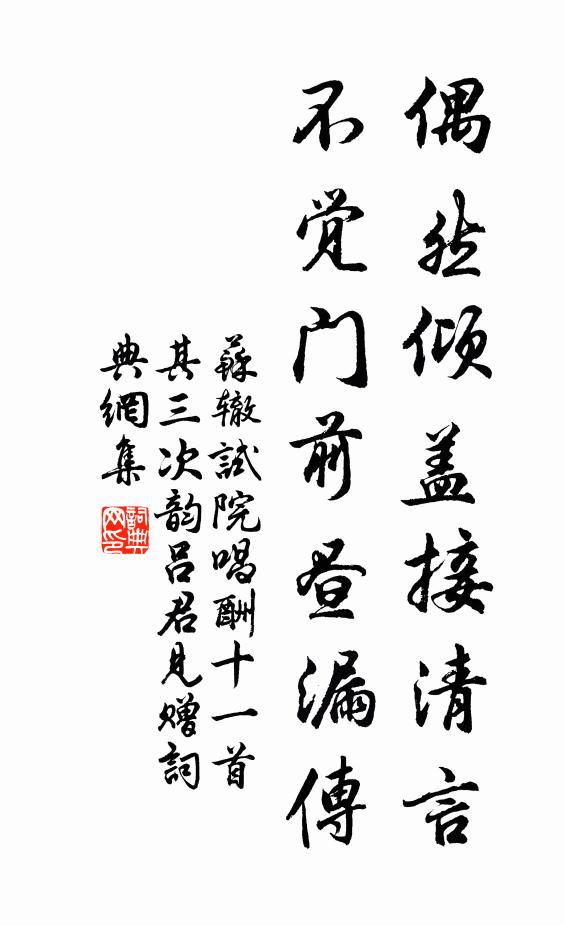 偶然倾盖接清言
不觉门前昼漏傳
蘇辙試院唱酬十一首
其三次韵吕君見赠詞
典網集
詞典
网印